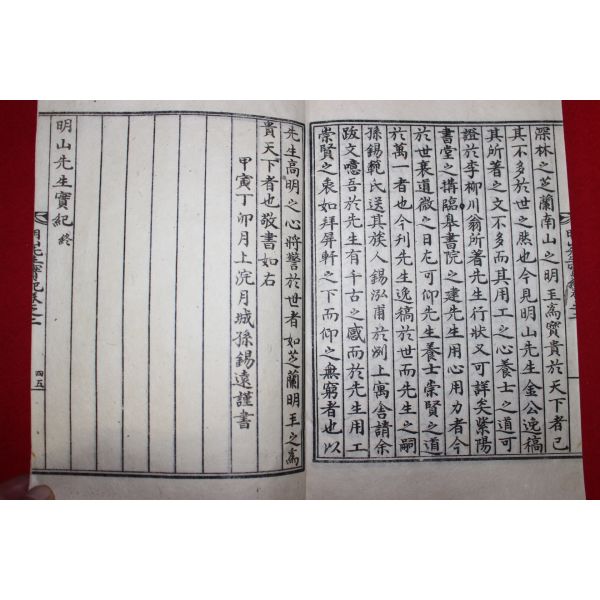 深林之芝蘭南山之明玉爲寶貴於天下者已
其不多於世之然也今見明山先生金公逸稿
其所著之文不多而其用工之心養士之道可
證於李柳川翁所著先生行狀又可詳矣紫陽
書堂之搆臨皐書院之建先生用心用力者今
於世衰道微之日尤可仰先生養士崇賢之道
於萬一者也今刋先生逸稿於世而先生之嗣
孫錫範氏送其族人錫泓甫於洌上寓舍請余
跋文噫吾於先生有千古之感而於先生用工
崇賢之衷如拜屏軒之下而仰之無窮者也以
先生高明之心將警於世者如芝蘭明玉之爲
貴天下者也敬書如右
甲寅丁卯月上浣月城孫錫遠謹書
明山先生實紀 終
四五